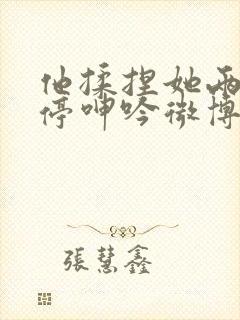 他揉捏她两
停呻吟微博
張慧鑫